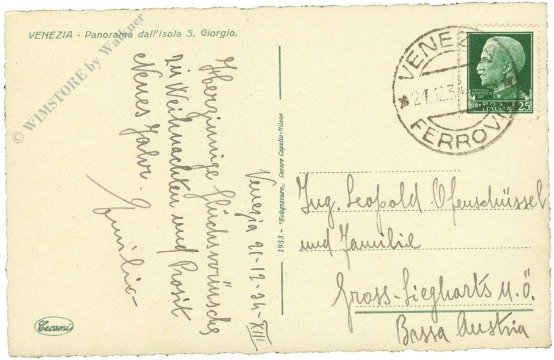 VENEZIA - Panorama dall'Isola S. Giorgio.
© WIMSTORE by Wallner
Venezia 21-12-34-XIII
Herzinnige Glückswünsche
zu Weihnachten und Prosit
Neues Jahr.
Emilio-
Cecami
1933 - Fotogravure, Cesare Capello-Milano
VENEZIA
21.12.3
FERROVIA
POSTE
ITALIANE
25
Ing. Leopold Ofenschüssel
und Familie
Gross-Siegharts N.Ö.
Bassa Austria